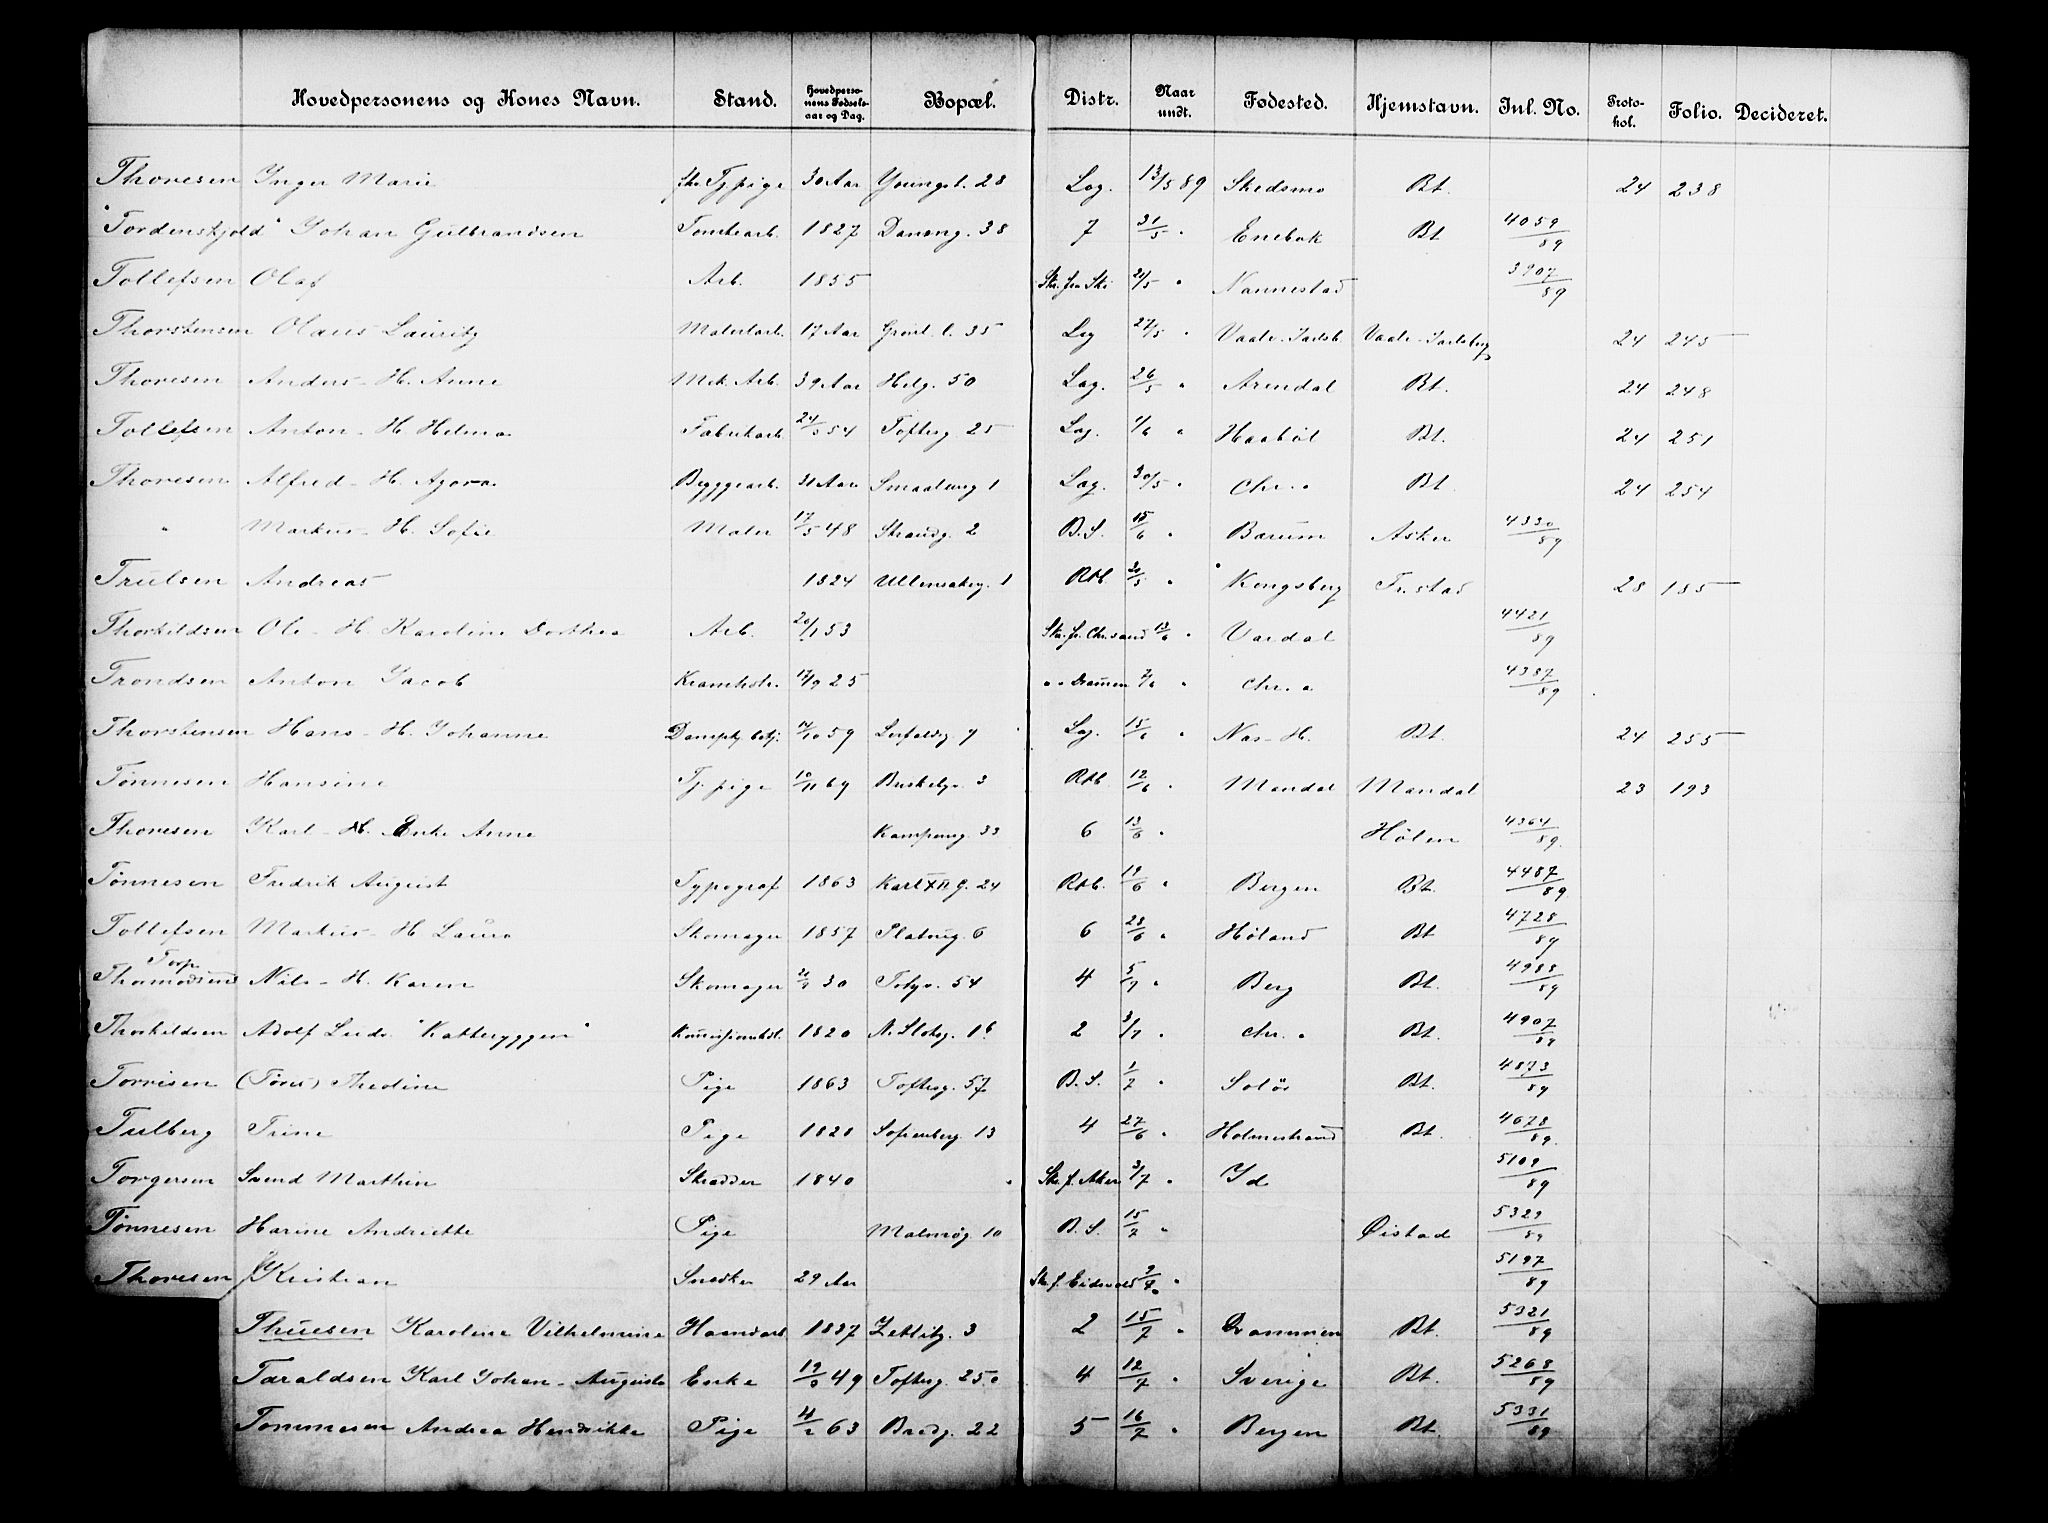 Hovedpersonens og Kones Navn. Stand. Hovedpersonens Fødselsaar og Dag. Bopæl. Distr. Naar undt. Fødested. Hjemstavn. Inl. No. Protokol. Folio. Decideret.
Thoresen Inger Marie 30 Aar Youngst. 28 Lag. 13/5 89 Skedsmo Bt. 24 238
"Tordenskjold" Johan Gulbrandsen Tomtearb. 1827 Danevg. 38 7 31/5 " Enebak Bt 4059/89
Tollefsen Olaf Arb. 1855 Skr. fra Ski 21/5 " Nannestad 3907/89
Thorstensen Olaus Lauritz Malerlærl. 17 Aar Grønl. l. 35 Lag 27/5 " Vaale-Jarlsb. Vaale-Jarlsberg 24 245
Thoresen Anders - H. Anne Mek. Arb. 39 Aar Helg. 50 Lag. 26/5 " Arendal Bt. 24 248
Tollefsen Anton - H. Helma Fabrikarb. 24/5 54 Toftesg. 25 Lag. 1/6 " Haabøl Bt. 24 251
Thoresen Alfred - H. Agora Byggearb. 31 Aar Smaalensg 1 Lag. 30/5 " Chr.a Bt. 24 254
" Markus - H. Sofie Maler 17/5 48 Strandg. 2 B.S. 15/6 " Bærum Asker 4330/89
Trulsen Andreas 1824 Ullensakerg. 1 Rtb. 21/5 " Kongsberg Fr.stad 28 185
Thorkildsen Ole - H. Karoline Dorthea Arb. 20/1 53 Skr. fr. Chr.sand 13/6 " Vardal 4421/89
Trondsen Anton Jacob Kramhdl. 17/9 25 " " Drammen 7/6 " Chr.a 4387/89
Thorstensen Hans - H. Johanne 14/10 59 Lag. 15/6 " Næs-H. Bt. 24 255
Tønnesen Hansine Tj. pige 10/11 69 3 Rtb. 12/6 " Mandal Mandal 23 193
Thoresen Karl - H. Enke Anne Kampeng. 33 6 13/6 " Hølen 4364/89
Tønnesen Fredrik August Typograf 1863 Karl XII g. 24 Rtb. 19/6 " Bergen Bt. 4487/89
Tollefsen Markus - H Laura Skomager 1857 Platousg. 6 6 28/6 " Høland Bt 4728/89
Torp
Thormodsens Nils - H. Karen Skomager 30 Toftg. 54 4 5/7 " Berg Bt. 4983/89
Thorkildsen Adolf Ludv. "Katteryggen" 1820 N. Slotsg. 16 2 3/7 " Chr.a Bt. 4907/89
Torrisen (Tøris) Thedine Pige 1863 Toftesg. 57 B.S. 1/7 " Solør Bt. 4873/89
Tulberg Trine Pige 1820 Sofienberg. 13 4 27/6 " Holmestrand Bt. 4678/89
Torgersen Svend Marthin Skrædder 1840 Skr. f. Aker 3/7 " Id 5109/89
Tønnesen Harine Andriette Pige Malmøg. 10 B.S. 15/7 " Øistad 5329/89
Thoresen Kristian Snedker 29 Aar Skr. f. Eidsvold " 5197/89
Thuesen Karoline Vilhelmine Haandarb 1837 Zetlitzg. 3 2 15/7 " Drammen Bt. 5321/89
Taraldsen Karl Johan - Augusta Enke 49 Toftesg. 25 4 12/7 " Sverige Bt. 5268/89
Tommesen Andrea Hendrikke Pige 63 Bredg. 22 5 16/7 " Bergen Bt. 5331/89